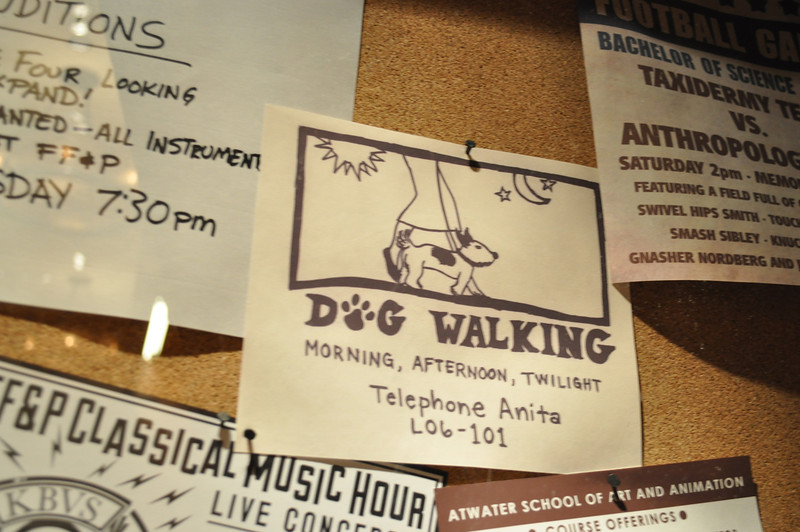 FOUR LOOKING
ALL INSTRUMENT
FF&P
7:30pm
DOG WALKING
MORNING, AFTERNOON, TWILIGHT
Telephone Anita
LO6-101
FOOTBALL
BACHELOR OF SCIENCE
TAXIDERMY
VS.
SATURDAY 2pm -
FEATURING A FIELD FULL OF
SWIVEL HIPS SMITH -
SMASH SIBLEY -
GNASHER NORDBERG AND
FF&P CLASSICAL MUSIC HOUR
LIVE
KBVS
ATWATER SCHOOL OF ART AND ANIMATION
COURSE OFFERINGS